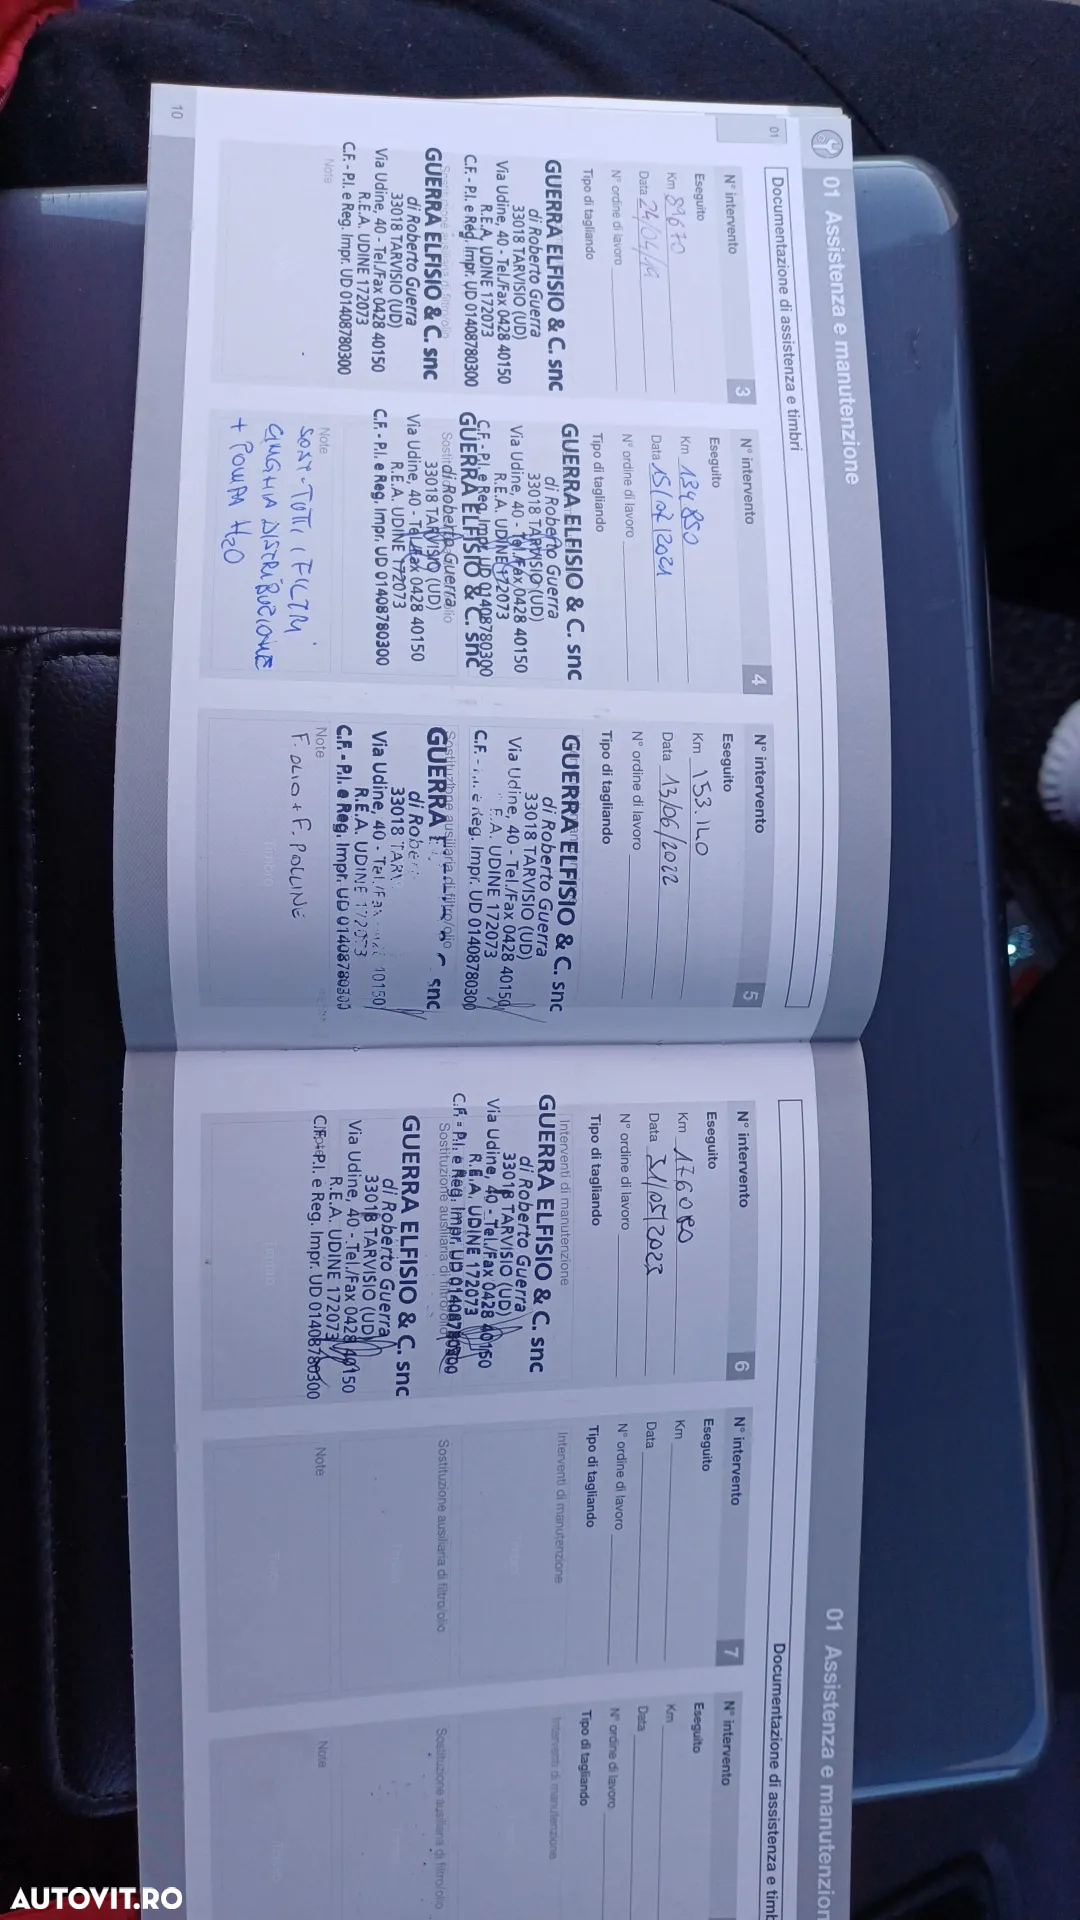 10
01
01 Assistenza e manutenzione
Documentazione di assistenza e timbri
N° intervento 3
Eseguito
Km 89670
Data 24/04/19
N° ordine di lavoro
Tipo di tagliando
GUERRA ELFISIO & C. snc
di Roberto Guerra
33018 TARVISIO (UD)
Via Udine, 40 - Tel./Fax 0428 40150
R.E.A. UDINE 172073
C.F. - P.I. e Reg. Impr. UD 01408780300
GUERRA ELFISIO & C. snc
di Roberto Guerra
33018 TARVISIO (UD)
Via Udine, 40 - Tel./Fax 0428 40150
R.E.A. UDINE 172073
C.F. - P.I. e Reg. Impr. UD 01408780300
Note
N° intervento 4
Eseguito
Km 134850
Data 15/07/2021
N° ordine di lavoro
Tipo di tagliando
GUERRA ELFISIO & C. snc
di Roberto Guerra
33018 TARVISIO (UD)
Via Udine, 40 - Tel./Fax 0428 40150
R.E.A. UDINE 172073
C.F. - P.I. e Reg. Impr. UD 01408780300
GUERRA ELFISIO & C. snc
di Roberto Guerra
33018 TARVISIO (UD)
Via Udine, 40 - Tel./Fax 0428 40150
R.E.A. UDINE 172073
C.F. - P.I. e Reg. Impr. UD 01408780300
Note
SOST. TUTTI I FILTRI
CINGHIA DISTRIBUZIONE
+ POMPA H2O
N° intervento 5
Eseguito
Km 153.140
Data 13/06/2022
N° ordine di lavoro
Tipo di tagliando
GUERRA ELFISIO & C. snc
di Roberto Guerra
33018 TARVISIO (UD)
Via Udine, 40 - Tel./Fax 0428 40150
R.E.A. UDINE 172073
C.F. - P.I. e Reg. Impr. UD 01408780300
Sostituzione ausiliaria di filtro/olio
GUERRA C. snc
di Robert
33018 TARV
Via Udine, 40 - Tel./Fax 40150
R.E.A. UDINE 172073
C.F. - P.I. e Reg. Impr. UD 01408780300
Note
F. OLIO + F. POLLINE
01 Assistenza e manutenzion
Documentazione di assistenza e timb
N° intervento 6
Eseguito
Km 176080
Data 31/05/2023
N° ordine di lavoro
Tipo di tagliando
Interventi di manutenzione
GUERRA ELFISIO & C. snc
di Roberto Guerra
33018 TARVISIO (UD)
Via Udine, 40 - Tel./Fax 0428 40150
R.E.A. UDINE 172073
C.F. - P.I. e Reg. Impr. UD 01408780300
Sostituzione ausiliaria di filtro/olio
GUERRA ELFISIO & C. snc
di Roberto Guerra
33018 TARVISIO (UD)
Via Udine, 40 - Tel./Fax 0428 40150
R.E.A. UDINE 172073
C.F. - P.I. e Reg. Impr. UD 01408780300
Note
N° intervento 7
Eseguito
Km
Data
N° ordine di lavoro
Tipo di tagliando
Interventi di manutenzione
Sostituzione ausiliaria di filtro/olio
Note
N° intervento
Eseguito
Km
Data
N° ordine di lavoro
Tipo di tagliando
Interventi di manutenzione
Sostituzione ausiliaria di filtro/olio
Note
AUTOVIT.RO